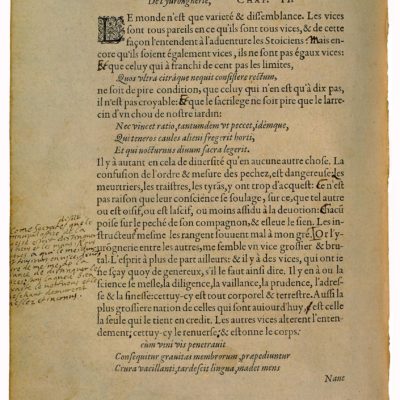 De l'yurongnerie, CHAP. II.
LE monde n'est que varieté & dissemblance. Les vices
sont tous pareils en ce qu'ils sont tous vices, & de cette
façon l'entendent à l'aduenture les Stoiciens: Mais en-
core qu'ils soient également vices, ils ne sont pas égaux vices:
& que celuy qui à franchi de cent pas les limites,
Quos vltra citráque nequit consistere rectum,
ne soit de pire condition, que celuy qui n'en est qu'à dix pas,
il n'est pas croyable: & que le sacrilege ne soit pire que le larre-
cin d'vn chou de nostre iardin:
Nec vincet ratio, tantumdem vt peccet, idémque,
Qui teneros caules alieni fregerit horti,
Et qui nocturnus diuum sacra legerit.
Il y à autant en cela de diuersité qu'en aucune autre chose. La
confusion de l'ordre & mesure des pechez, est dangereuse: les
meurtriers, les traistres, les tyrãs, y ont trop d'acquest: Ce n'est
pas raison que leur conscience se soulage, sur ce, que tel au-
tre ou est oisif, ou est lascif, ou moins assidu à la deuotion: Chacū
poise sur le peché de son compagnon, & esleue le sien. Les in-
structeurs mesme les rangent souuent mal à mon gré. Or l'y-
urongnerie entre les autres, me semble vn vice grossier & bru-
tal. L'esprit à plus de part ailleurs: & il y à des vices, qui ont ie
ne sçay quoy de genereux, s'il le faut ainsi dire. Il y en à ou la
science se mesle, la diligence, la vaillance, la prudence, l'adres-
se & la finesse: cettuy-cy est tout corporel & terrestre. Aussi la
plus grossiere nation de celles qui sont auiourd'huy, est celle
la seule qui le tient en credit. Les autres vices alterent l'enten-
dement; cettuy-cy le renuerse, & estonne le corps.
cùm vini vis penetrauit
Consequitur grauitas membrorum, præpediuntur
Crura vacillanti, tardescit lingua, madet mens
Nant